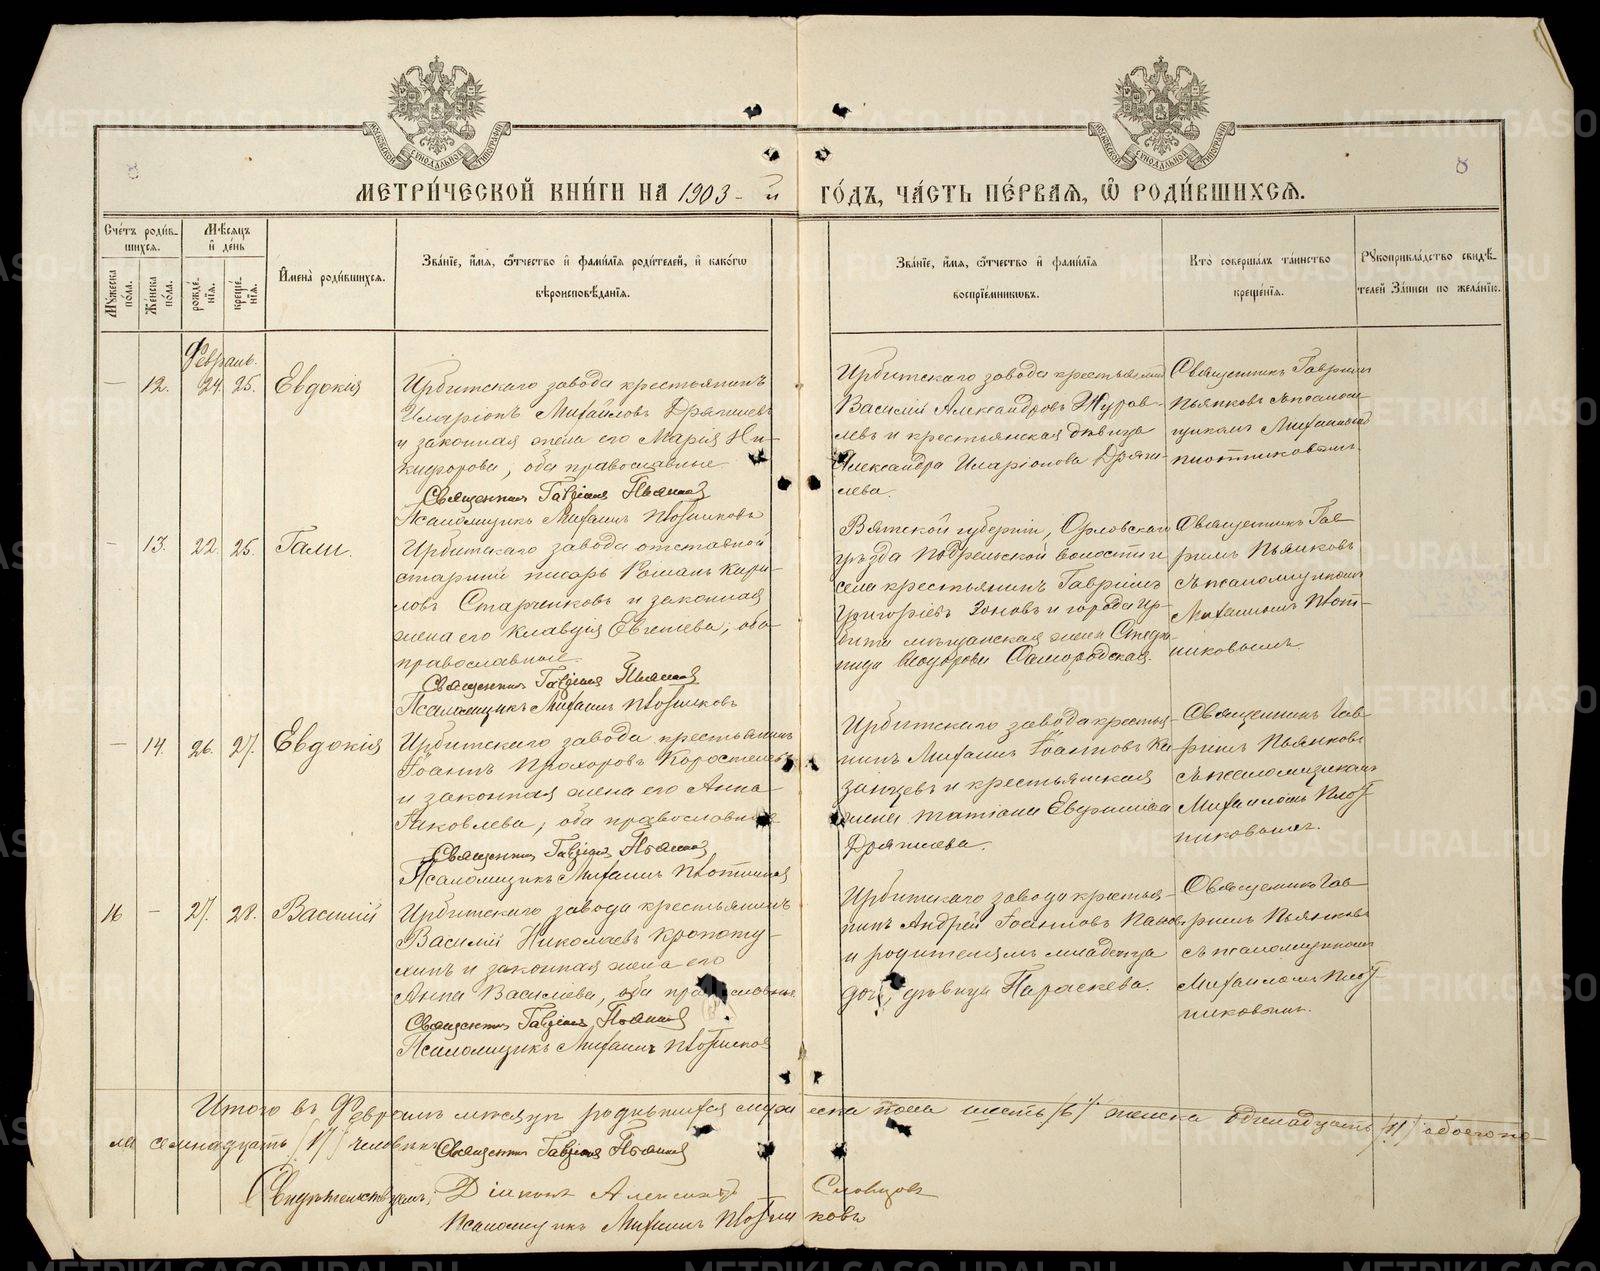 МЕТРИ́ЧЕСКОЙ КНИ́ГИ НА 1903-й ГО́ДЪ, ЧА́СТЬ ПЕ́РВАЯ, Ѡ РОДИ́ВШИХСЯ.
8
8
Сче́тъ роди́вшихся.
Му́жеска по́ла.
Же́нска по́ла.
Мѣ́сяцъ и де́нь
рожде́нїя.
креще́нїя.
Имена̀ роди́вшихся.
Зва́нїе, и́мя, ѻ́тчество и фами́лїя роди́телей, и како́гѡ
вѣроисповѣ́данїя.
Зва́нїе, и́мя, ѻ́тчество и фами́лїя
воспрїе́мникѡвъ.
Кто̀ соверша́лъ та́инство
креще́нїя.
Рукоприкла́дство свидѣ́-
телей за́писи по жела́нїю.
Февраль.
— 12. 24. 25. Евдокія
Ирбитскаго завода крестьянинъ
Иларіонъ Михайловъ Дрягилевъ
и законная жена его Марія Ни-
кифорова, оба православные
Священникъ Гавріилъ Пьянковъ
Псаломщикъ Михаилъ Плотниковъ
Ирбитскаго завода крестьянинъ
Василій Александровъ Журав-
левъ и крестьянская дѣвица
Александра Иларіонова Дряги-
лева.
Священникъ Гавріилъ
Пьянковъ съ псалом-
щикомъ Михаиломъ
Плотниковымъ.
— 13. 22. 25.
Ирбитскаго завода отставной
старшій писарь Романъ Кири-
ловъ Старченковъ и законная
жена его Клавдія Евгеніева, оба
православные.
Священникъ Гавріилъ Пьянковъ
Псаломщикъ Михаилъ Плотниковъ
Вятской губерніи, Орловскаго
уѣзда волости и
села крестьянинъ Гавріилъ
Григоріевъ Зоновъ и города Ир-
бита мѣщанская жена Степа-
нида Ѳеодорова Самородская.
Священникъ Гав-
ріилъ Пьянковъ
съ псаломщикомъ
Михаиломъ Плот-
никовымъ.
— 14. 26. 27. Евдокія
Ирбитскаго завода крестьянинъ
Іоаннъ Прохоровъ Коростелевъ
и законная жена его Анна
Яковлева, оба православные
Священникъ Гавріилъ Пьянковъ
Псаломщикъ Михаилъ Плотниковъ
Ирбитскаго завода крестья-
нинъ Михаилъ Іоанновъ Ка-
занцевъ и крестьянская
жена Татіана Евфиміева
Дрягилева.
Священникъ Гав-
ріилъ Пьянковъ
съ псаломщикомъ
Михаиломъ Плот-
никовымъ.
16 — 27. 28. Василій
Ирбитскаго завода крестьянинъ
Василій Николаевъ Кропоту-
хинъ и законная жена его
Анна Василіева, оба православные
Священникъ Гавріилъ Пьянковъ
Псаломщикъ Михаилъ Плотниковъ
Ирбитскаго завода крестья-
нинъ Андрей Іоанновъ Пановъ
и родителямъ младенца
дочь, дѣвица Параскева.
Священникъ Гав-
ріилъ Пьянковъ
съ псаломщикомъ
Михаиломъ Плот-
никовымъ.
Итого въ Февралѣ мѣсяцѣ родившихся мужеска пола шесть /6/, женска одинадцать /11/ обоего по-
ла семнадцать /17/ человѣкъ Священникъ Гавріилъ Пьянковъ
Свидѣтельствуемъ: Діаконъ Александръ Словцовъ
Псаломщикъ Михаилъ Плотниковъ
METRIKI.GASO-URAL.RU